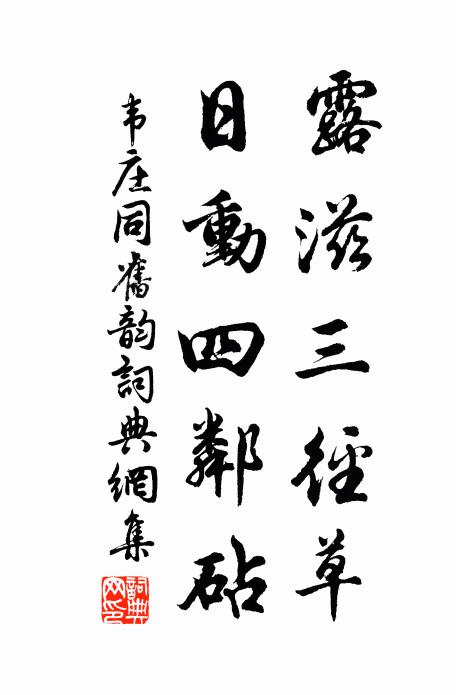 露滋三徑草
日動四鄰砧
韦庄同舊韵詞典網集
詞典網印